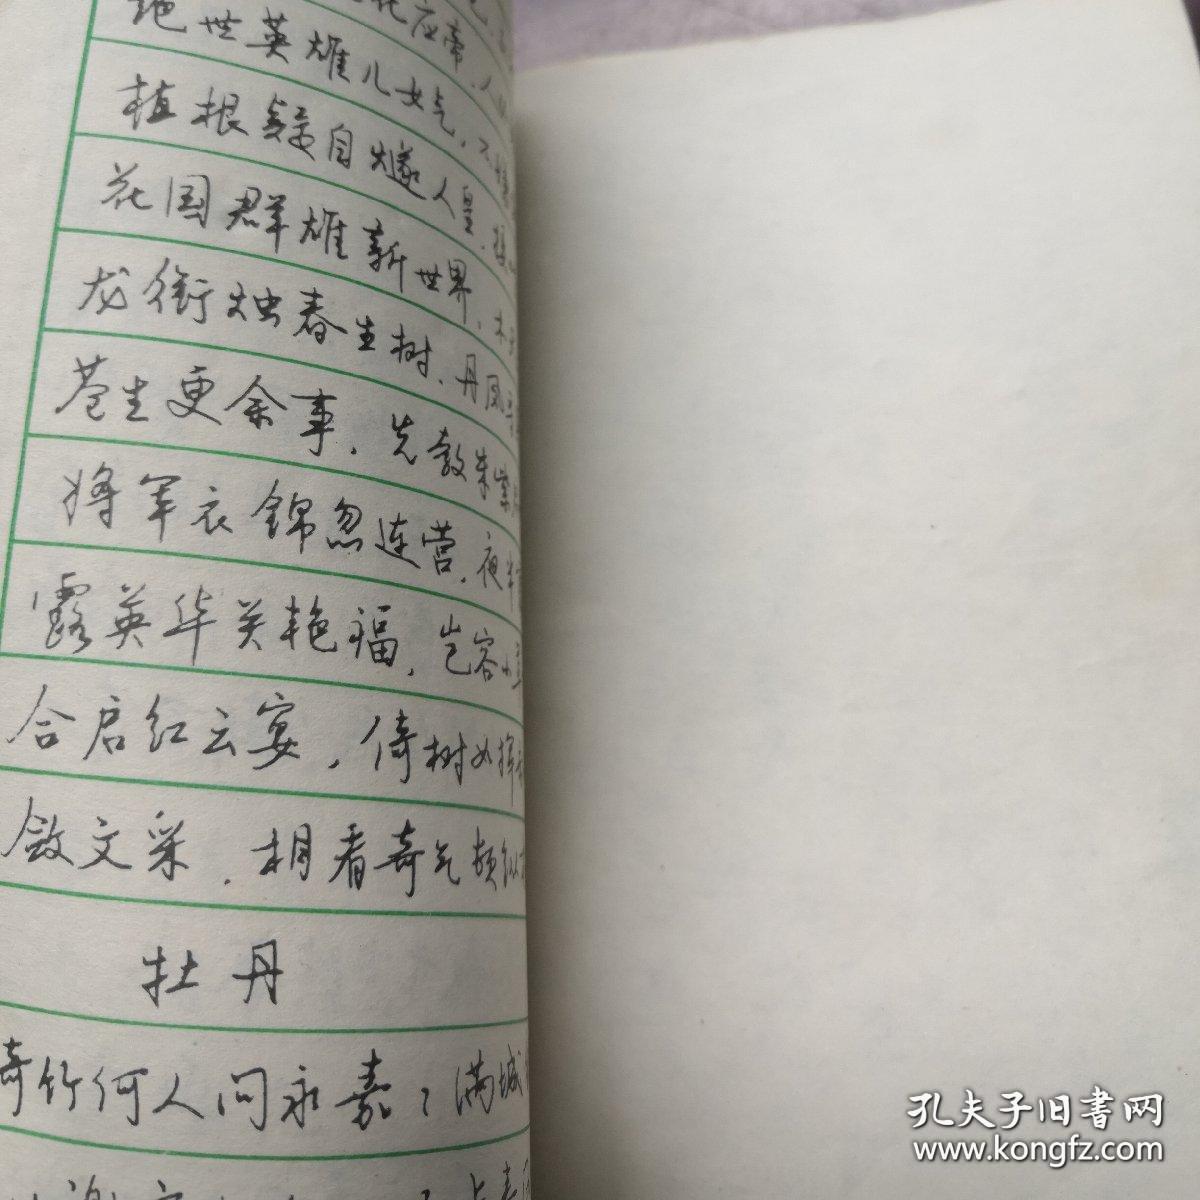 花应帝，人
绝世英雄儿女气，不
植根疑自燧人皇，
花国群雄新世界，木
龙衔烛春生树，丹凤
苍生更余事，先教朱紫
将军衣锦忽连营，夜半
露英华关艳福，岂容小
合启红云宴，倚树如挥
敛文采，相看奇气顿纵
牡丹
倚竹何人问永嘉？满城
孔夫子旧书网
www.kongfz.com